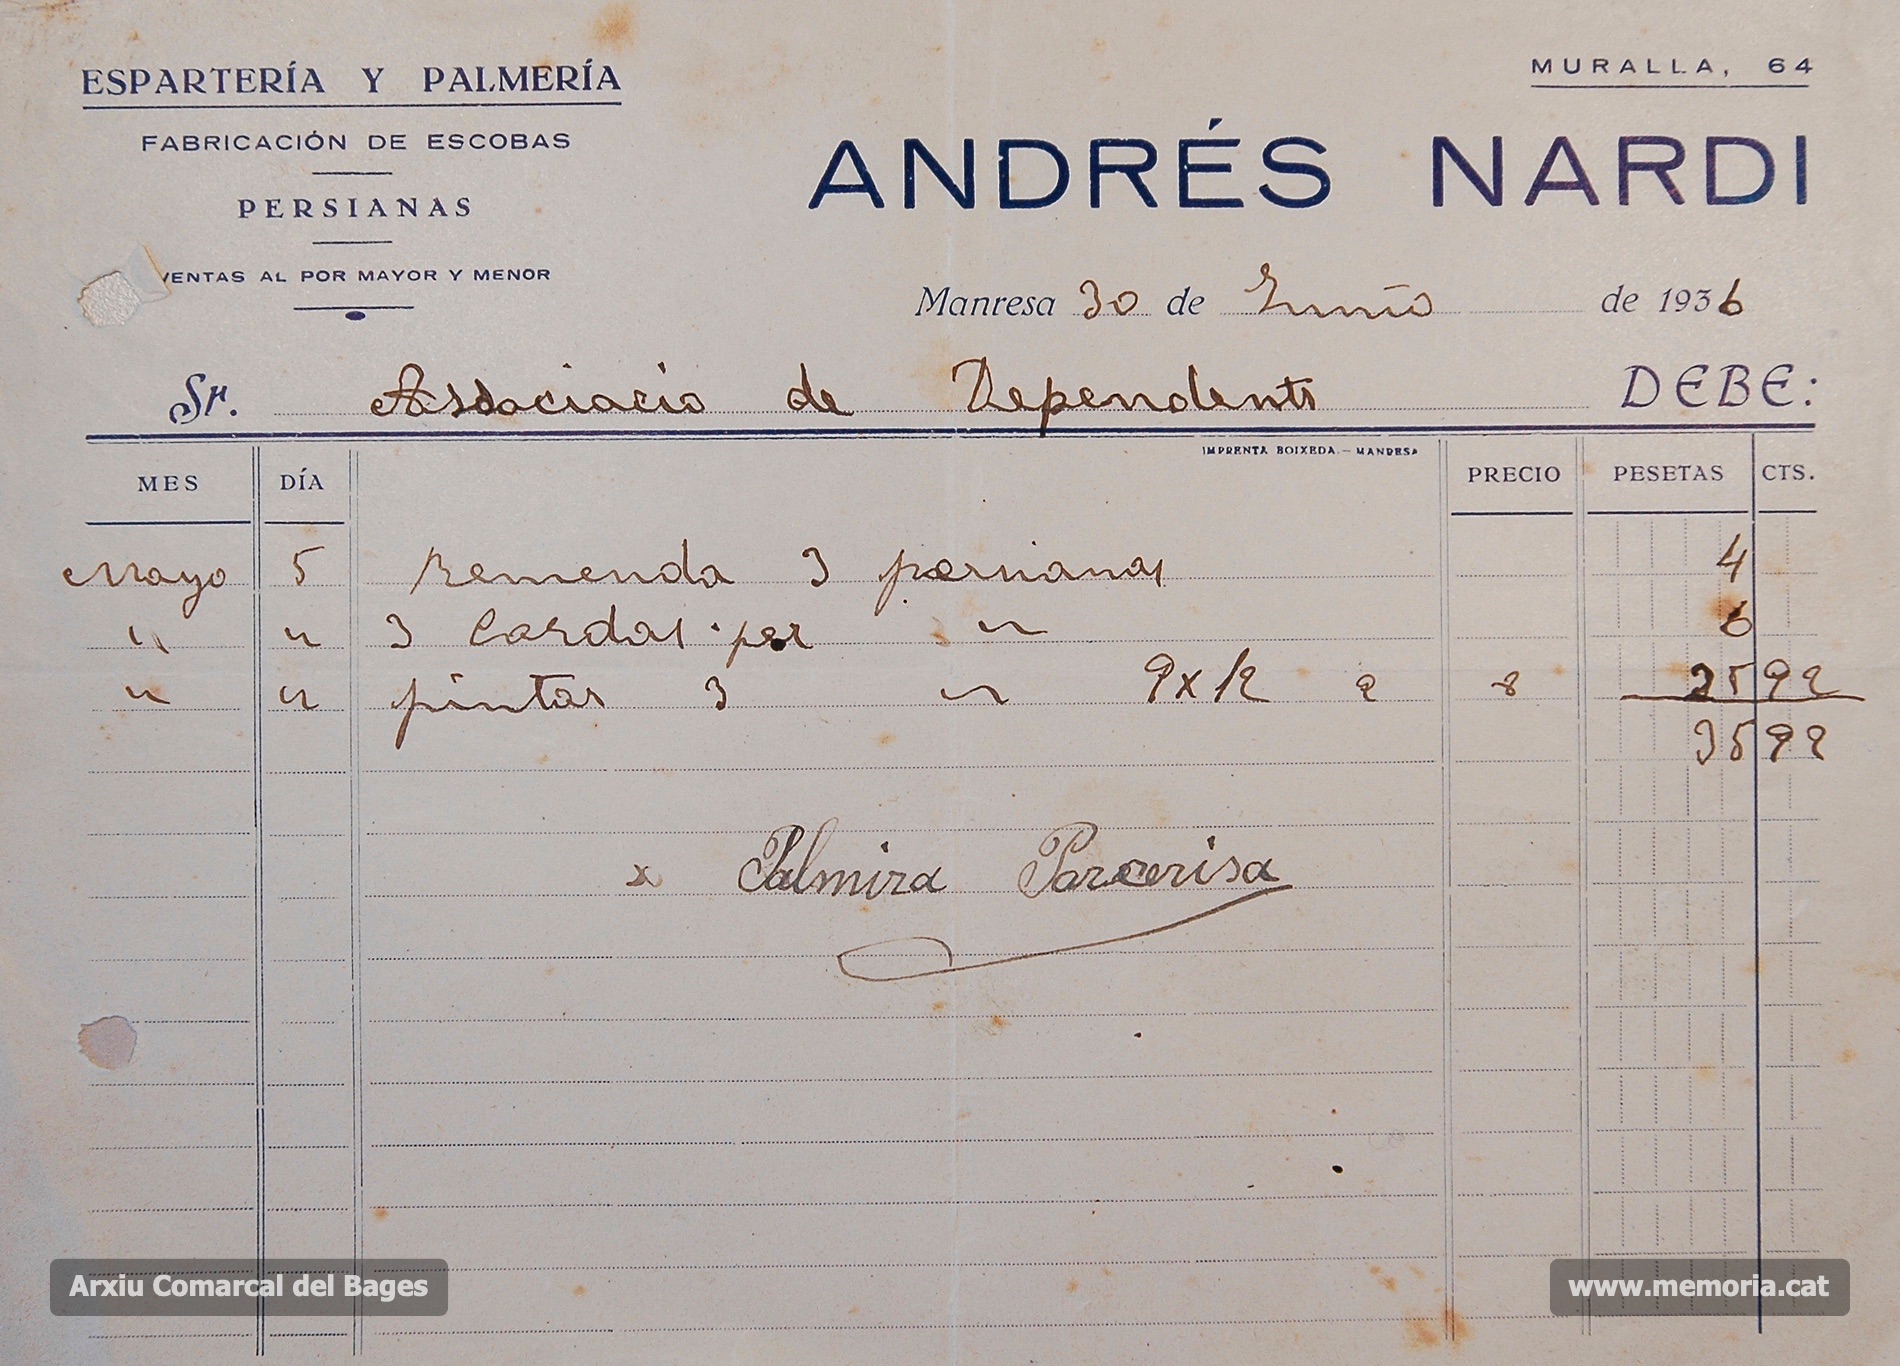 ESPARTERÍA Y PALMERÍA
FABRICACIÓN DE ESCOBAS
PERSIANAS
VENTAS AL POR MAYOR Y MENOR
MURALLA, 64
ANDRÉS NARDI
Manresa 30 de Junio de 1936
Sr. Associacio de Dependents DEBE:
IMPRENTA BOIXEDA.- MANRESA
MES DÍA PRECIO PESETAS CTS.
Mayo 5 Remenda 3 persianas 4
" " 3 Cordas per " 6
" " pintar 3 " 9 x 12 a 8 25 92
35 92
x Palmira Parcerisa
Arxiu Comarcal del Bages
www.memoria.cat